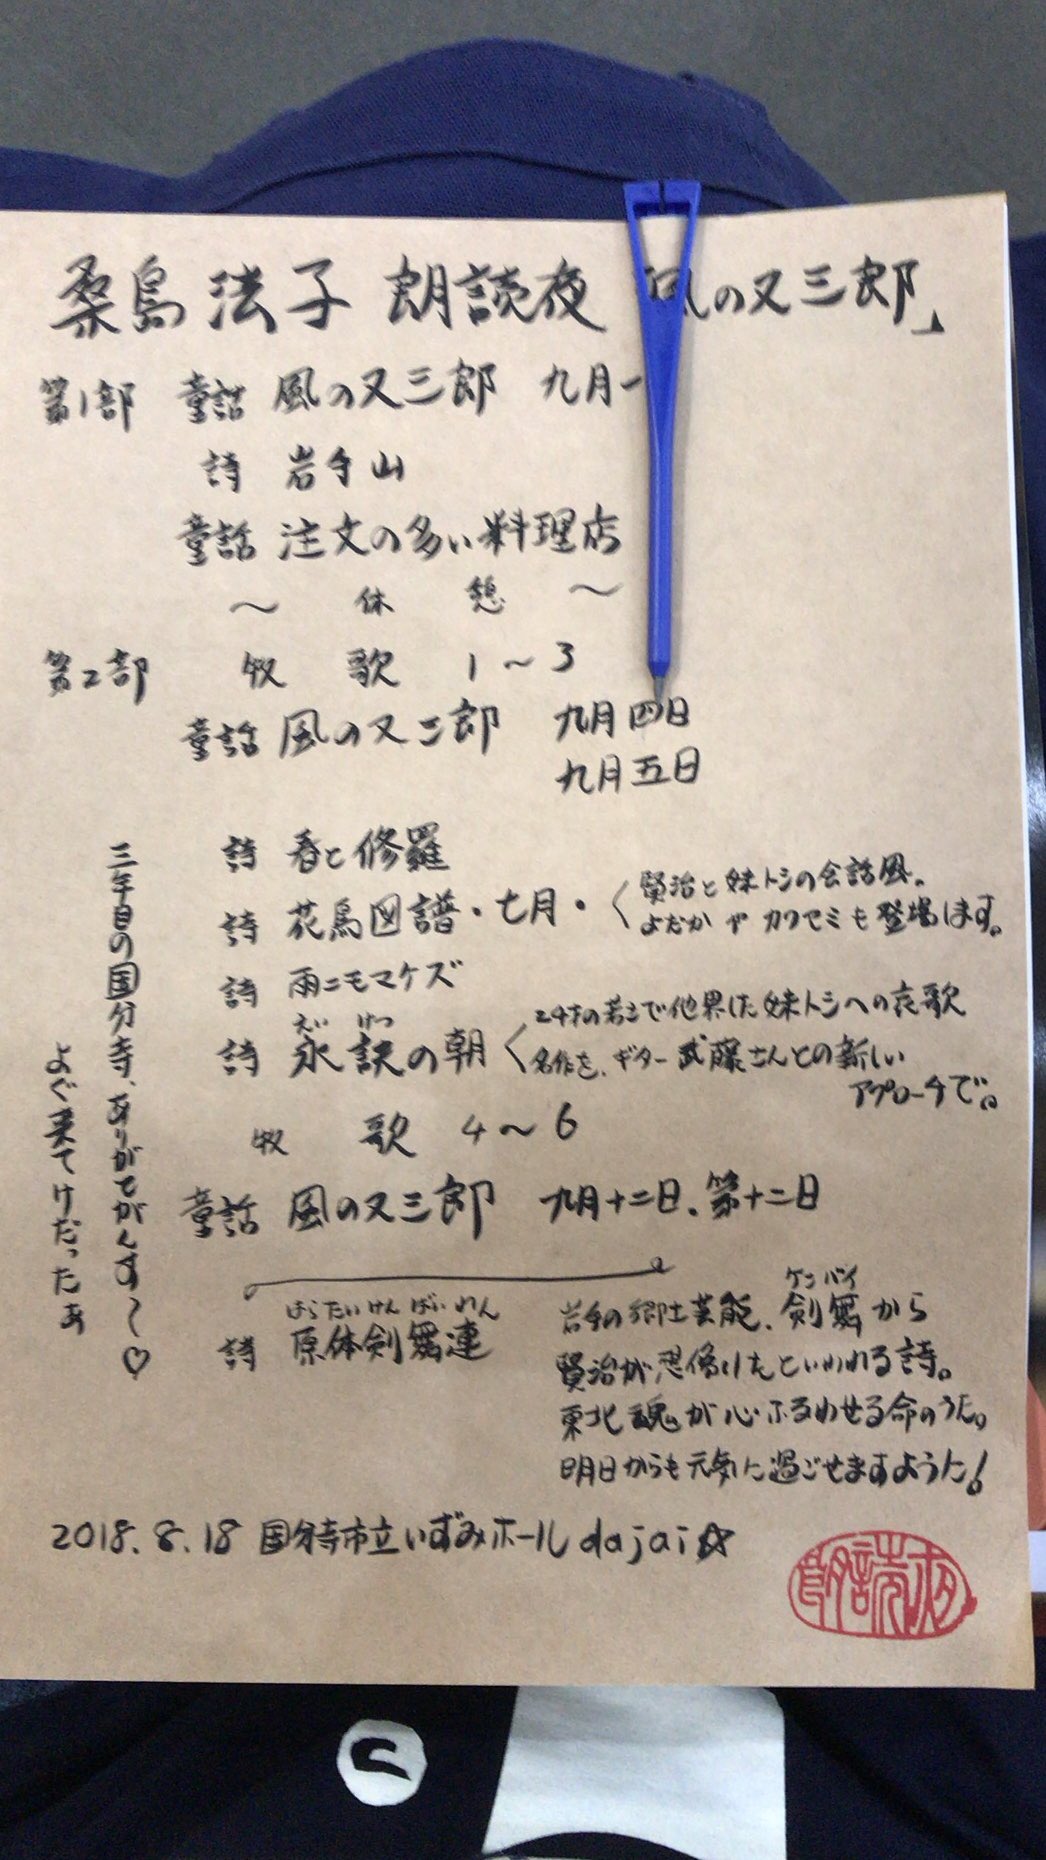 桑島法子 朗読夜 風の又三郎」
第1部 童話 風の又三郎 九月一
詩 岩手山
童話 注文の多い料理店
～ 休 憩 ～
第2部 牧 歌 1～3
童話 風の又三郎 九月四日
九月五日
詩 春と修羅
詩 花鳥図譜・七月・
賢治と妹トシの会話風。
よだかやカワセミも登場します。
詩 雨ニモマケズ
えい けつ
詩 永訣の朝
24才の若さで他界した妹トシへの哀歌
名作を、ギター武藤さんとの新しい
アプローチで。
牧 歌 4～6
童話 風の又三郎 九月十二日、第十二日
はらたいけんばいれん
詩 原体剣舞連
ケンバイ
岩手の郷土芸能、剣舞から
賢治が想像したといわれる詩。
東北魂が心ふるわせる命のうた。
明日からも元気に過ごせますように!
三年目の国分寺、ありがてがんす～♡
よぐ来てけだったぁ
2018.8.18 国分寺市立いずみホール dajai☆
朗読夜